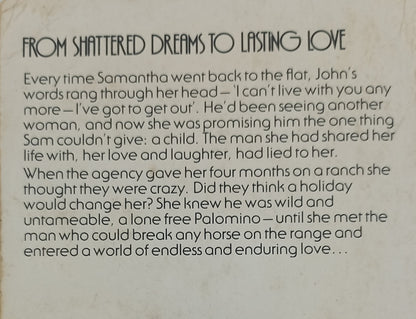 FROM SHATTERED DREAMS TO LASTING LOVE
Every time Samantha went back to the flat, John's
words rang through her head – 'I can't live with you any
more – I've got to get out'. He'd been seeing another
woman, and now she was promising him the one thing
Sam couldn't give: a child. The man she had shared her
life with, her love and laughter, had lied to her.
When the agency gave her four months on a ranch she
thought they were crazy. Did they think a holiday
would change her? She knew he was wild and
untameable, a lone free Palomino – until she met the
man who could break any horse on the range and
entered a world of endless and enduring love...